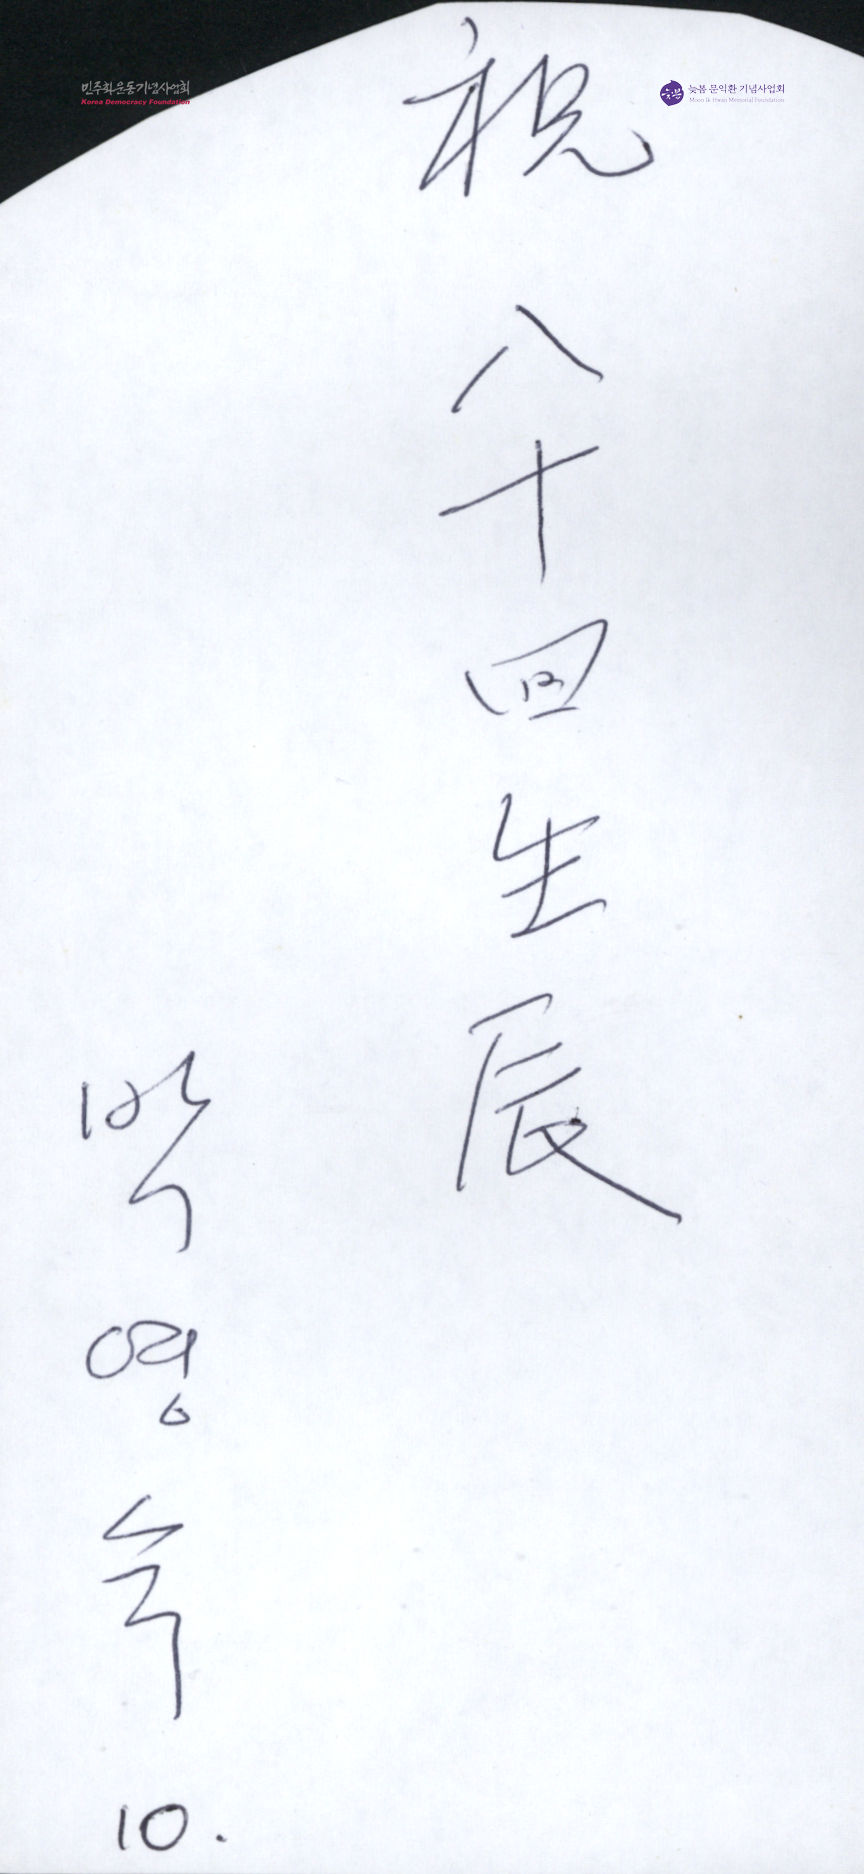 민주화운동기념사업회
Korea Democracy Foundation
늦봄
늦봄 문익환 기념사업회
Moon Ik Hwan Memorial Foundation
祝 八十回生辰
박영숙
10.